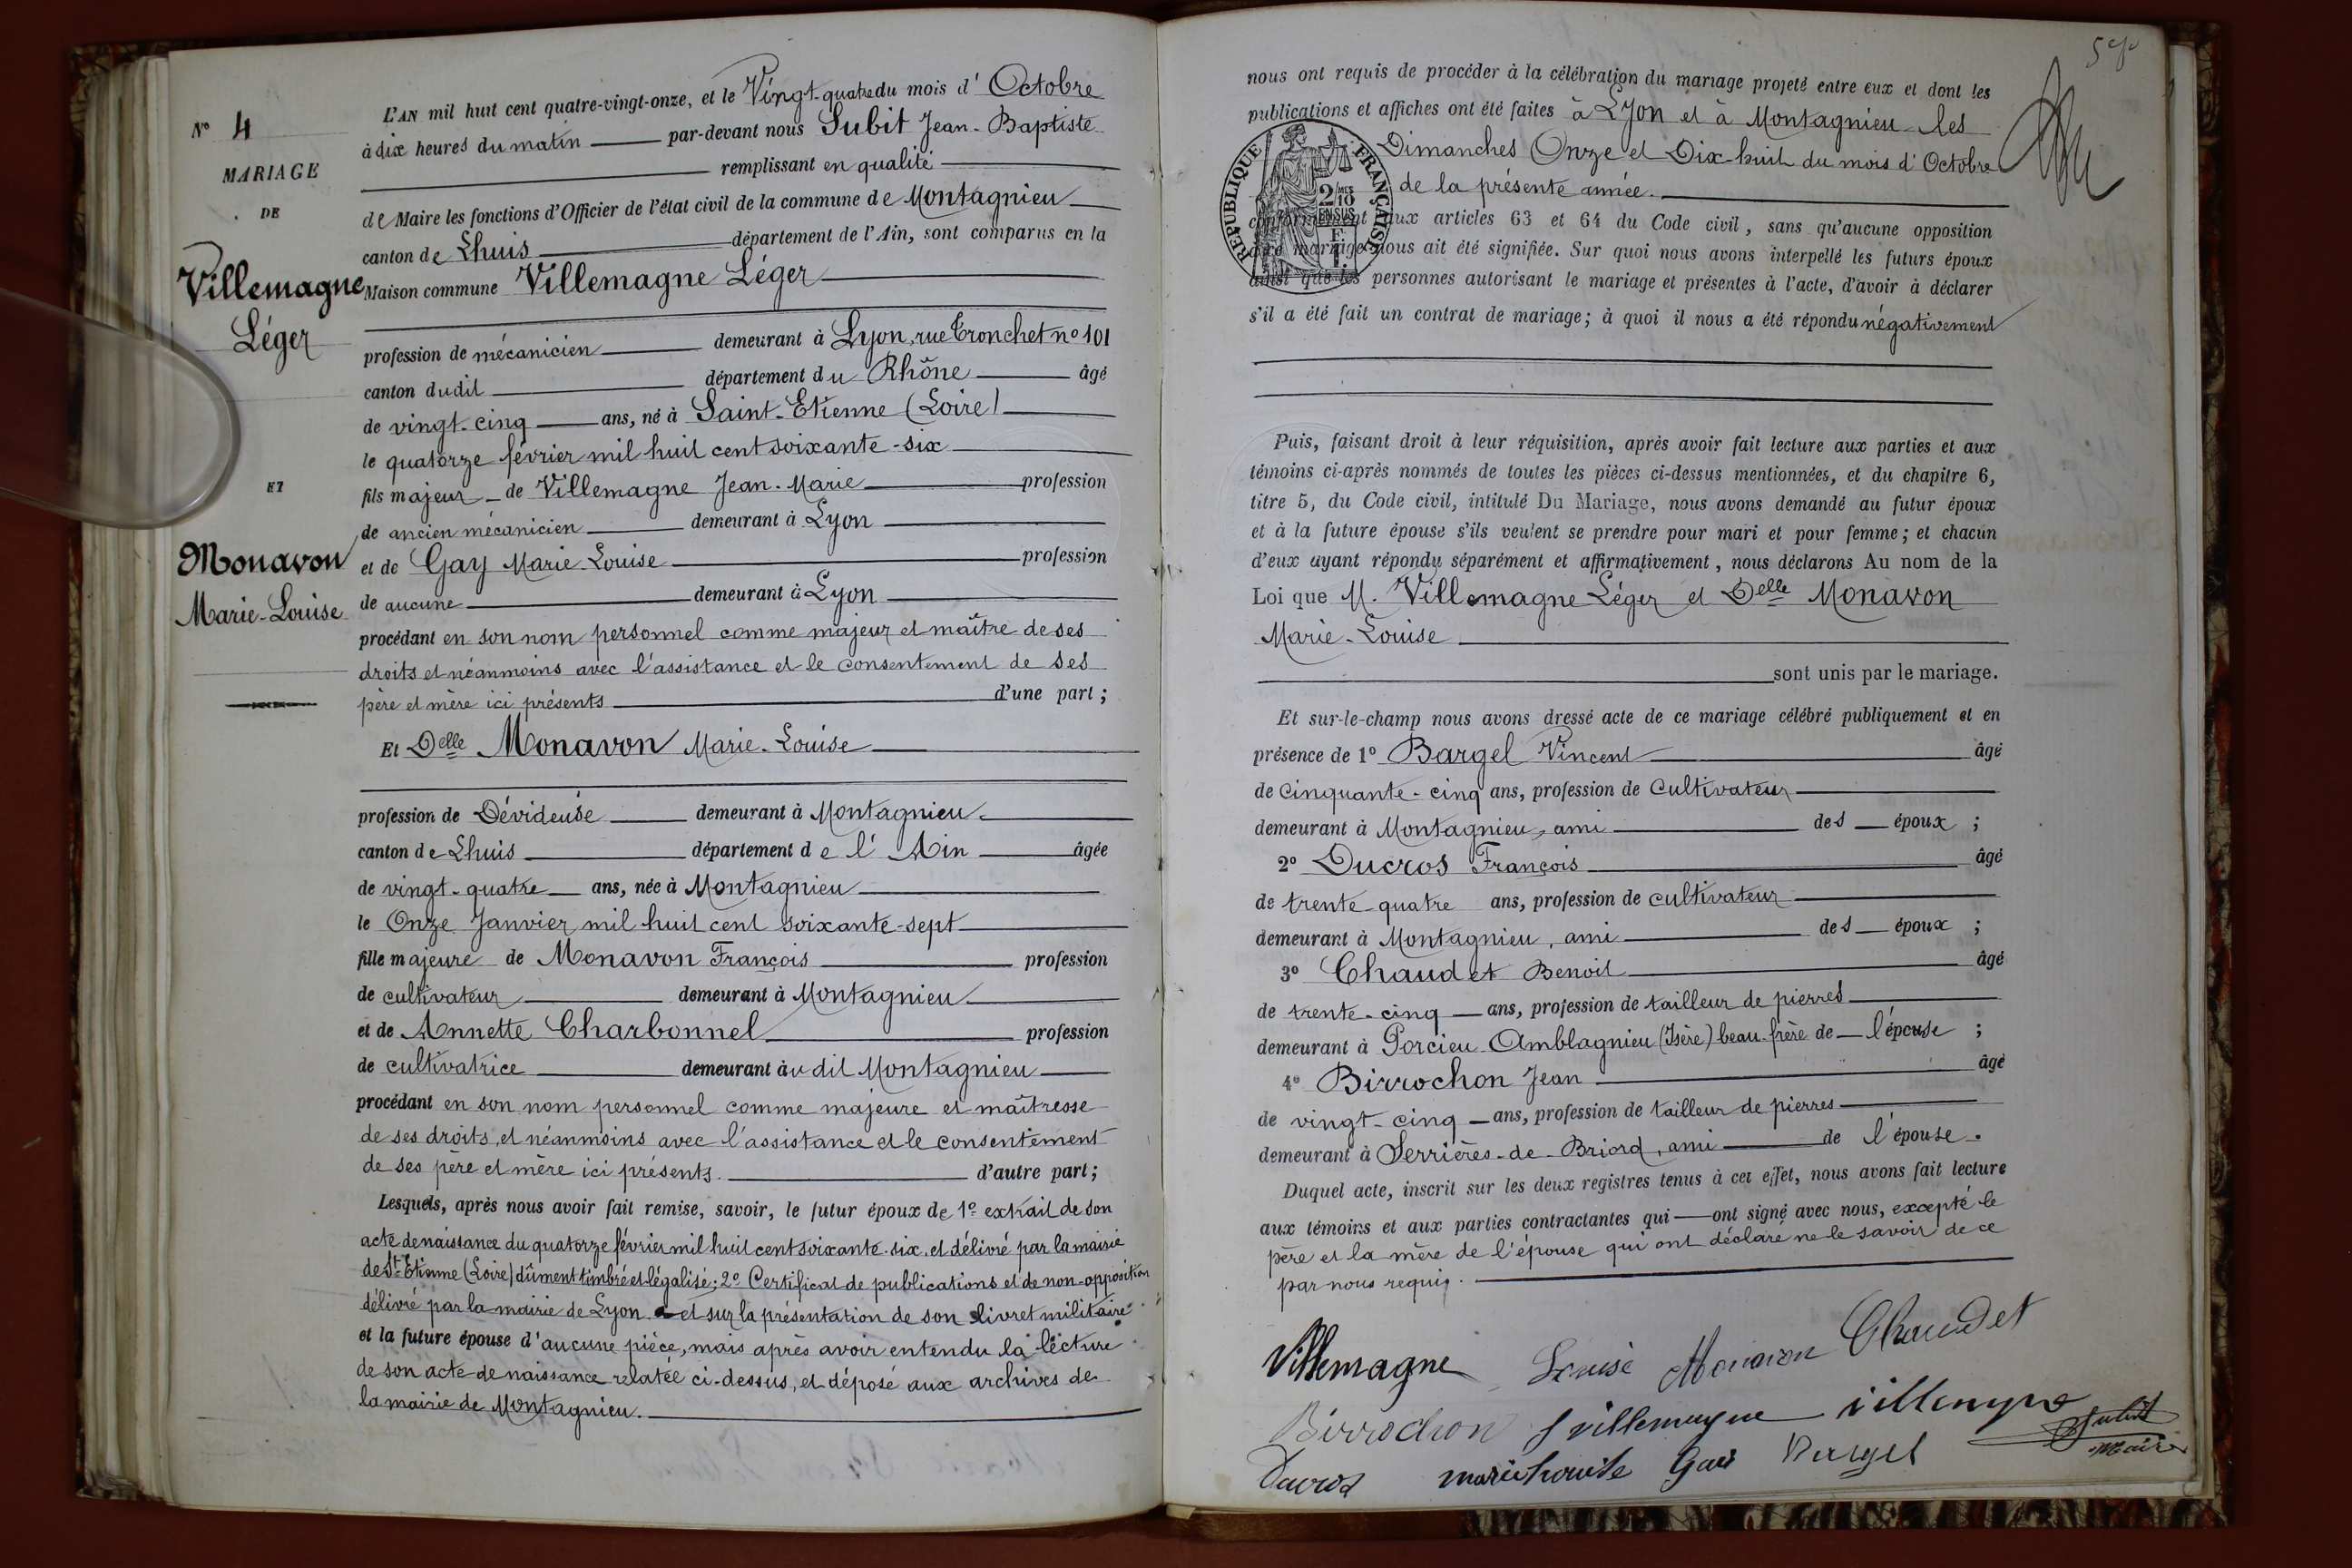 N° 4
MARIAGE
DE
Villemagne
Léger
ET
Monavon
Marie-Louise
L'AN mil huit cent quatre-vingt-onze, et le Vingt-quatre du mois d' Octobre
à dix heures du matin par-devant nous Subit Jean-Baptiste
remplissant en qualité
de Maire les fonctions d'Officier de l'état civil de la commune de Montagnieu
canton de Lhuis département de l'Ain, sont comparus en la
Maison commune Villemagne Léger
profession de mécanicien demeurant à Lyon, rue Tronchet n° 101
canton dudit département du Rhône âgé
de vingt-cinq ans, né à Saint-Etienne (Loire)
le quatorze février mil huit cent soixante-six
fils majeur de Villemagne Jean-Marie profession
de ancien mécanicien demeurant à Lyon
et de Gay Marie-Louise profession
de aucune demeurant à Lyon
procédant en son nom personnel comme majeur et maître de ses
droits et néanmoins avec l'assistance et le consentement de ses
père et mère ici présents d'une part ;
Et Delle Monavon Marie-Louise
profession de Dévideuse demeurant à Montagnieu
canton de Lhuis département de l' Ain âgée
de vingt-quatre ans, née à Montagnieu
le Onze Janvier mil huit cent soixante-sept
fille majeure de Monavon François profession
de cultivateur demeurant à Montagnieu
et de Annette Charbonnel profession
de cultivatrice demeurant àudit Montagnieu
procédant en son nom personnel comme majeure et maîtresse
de ses droits, et néanmoins avec l'assistance et le consentement
de ses père et mère ici présents. d'autre part ;
Lesquels, après nous avoir fait remise, savoir, le futur époux de 1° extrait de son
acte de naissance du quatorze février mil huit cent soixante-six, et délivré par la mairie
de St-Etienne (Loire) dûment timbré et légalisé ; 2° Certificat de publications et de non-opposition
délivré par la mairie de Lyon et sur la présentation de son livret militaire
et la future épouse d'aucune pièce, mais après avoir entendu la lecture
de son acte de naissance relatée ci-dessus, et déposé aux archives de
la mairie de Montagnieu.
nous ont requis de procéder à la célébration du mariage projeté entre eux et dont les
publications et affiches ont été faites à Lyon et à Montagnieu les
Dimanches Onze et Dix-huit du mois d'Octobre
de la présente année.
REPUBLIQUE FRANÇAISE
2/10 EN SUS
conformément aux articles 63 et 64 du Code civil, sans qu'aucune opposition
mariage nous ait été signifiée. Sur quoi nous avons interpellé les futurs époux
ainsi que les personnes autorisant le mariage et présentes à l'acte, d'avoir à déclarer
s'il a été fait un contrat de mariage ; à quoi il nous a été répondu négativement
Puis, faisant droit à leur réquisition, après avoir fait lecture aux parties et aux
témoins ci-après nommés de toutes les pièces ci-dessus mentionnées, et du chapitre 6,
titre 5, du Code civil, intitulé Du Mariage, nous avons demandé au futur époux
et à la future épouse s'ils veulent se prendre pour mari et pour femme ; et chacun
d'eux ayant répondu séparément et affirmativement, nous déclarons Au nom de la
Loi que M. Villemagne Léger et Delle Monavon
Marie-Louise
sont unis par le mariage.
Et sur-le-champ nous avons dressé acte de ce mariage célébré publiquement et en
présence de 1° Bargel Vincent âgé
de Cinquante-cinq ans, profession de Cultivateur
demeurant à Montagnieu, ami des époux ;
2° Ducros François âgé
de trente-quatre ans, profession de cultivateur
demeurant à Montagnieu, ami des époux ;
3° Chaudet Benoit âgé
de trente-cinq ans, profession de tailleur de pierres
demeurant à Porcieu-Amblagnieu (Isère) beau-frère de l'épouse ;
4° Birrochon Jean âgé
de vingt-cinq ans, profession de tailleur de pierres
demeurant à Serrières-de-Briord, ami de l'épouse.
Duquel acte, inscrit sur les deux registres tenus à cet effet, nous avons fait lecture
aux témoins et aux parties contractantes qui ont signé avec nous, excepté le
père et la mère de l'épouse qui ont déclaré ne le savoir de ce
par nous requis.
Villemagne Louise Monavon Chaudet
Birrochon J villemagne villemagne
Ducros marie Louise Gai Bargel Subit
Maire